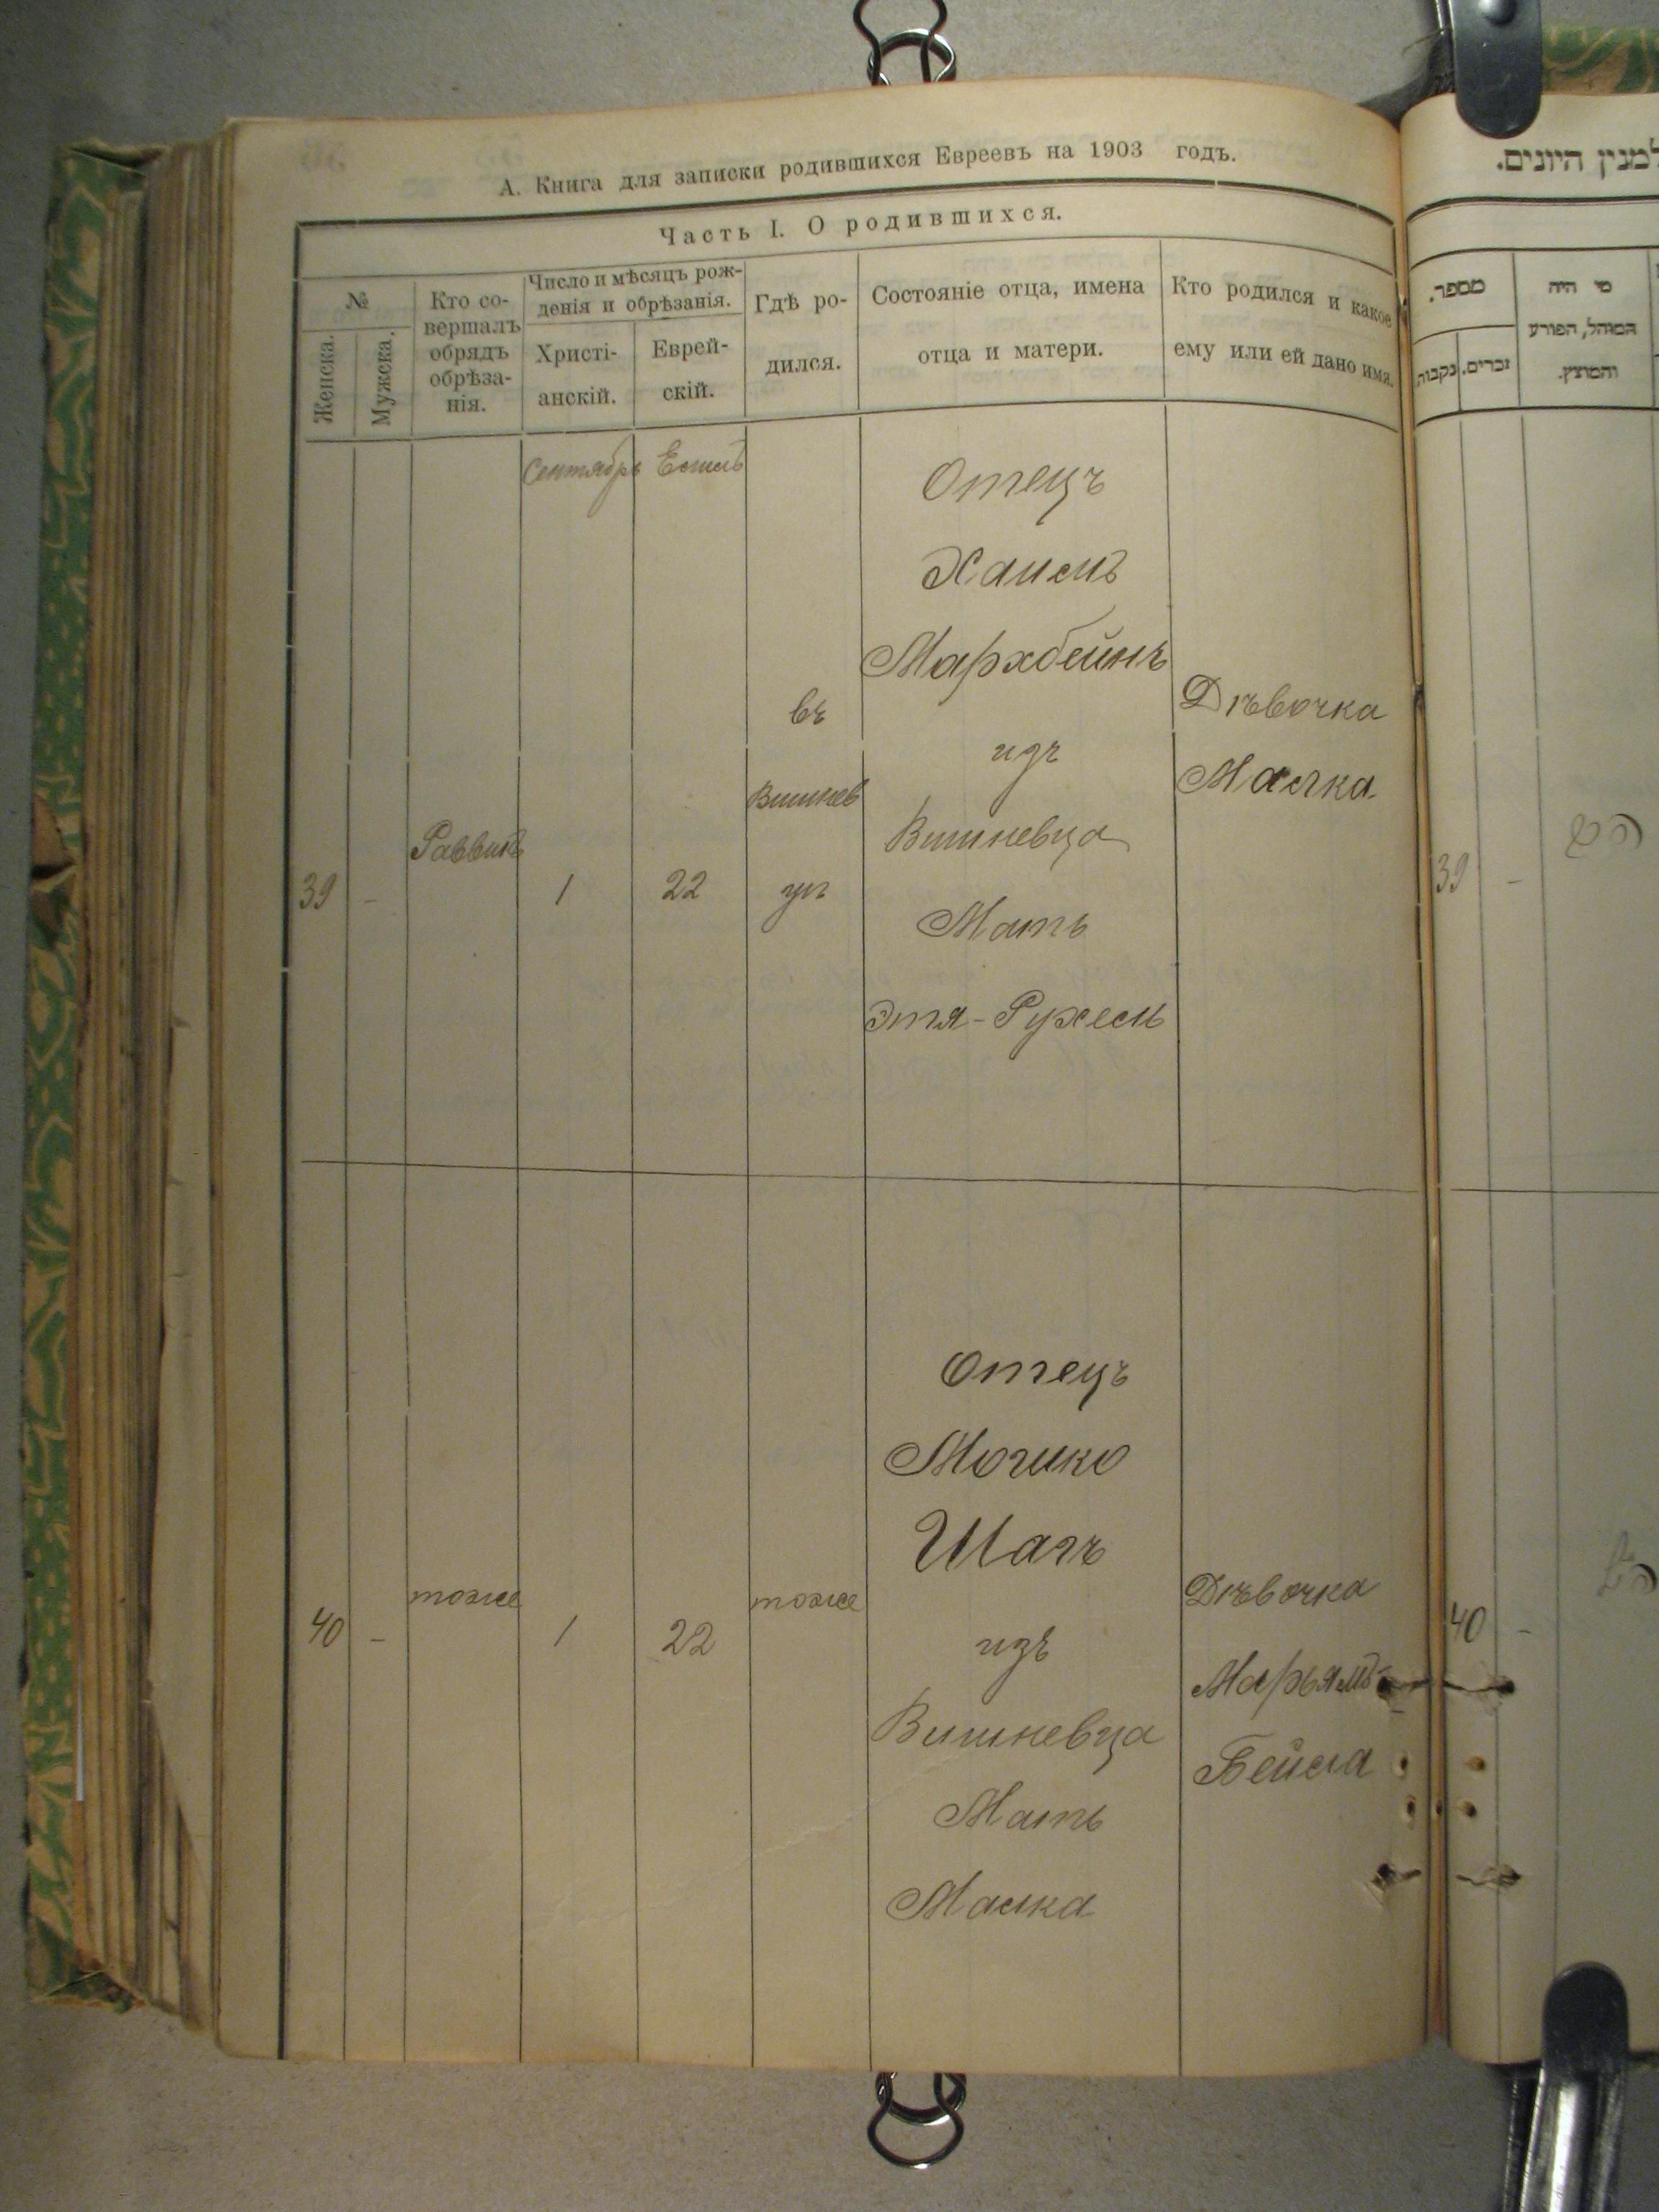 А. Книга для записки родившихся Евреевъ на 1903 годъ.
Часть I. О родившихся.
№
Женска.
Мужска.
Кто со-
вершалъ
обрядъ
обрѣза-
нія.
Число и мѣсяцъ рож-
денія и обрѣзанія.
Христі-
анскій.
Еврей-
скій.
Гдѣ ро-
дился.
Состояніе отца, имена
отца и матери.
Кто родился и какое
ему или ей дано имя.
Сентябрь
39
-
Раввинъ
1
22
въ
Вишнев
цѣ
Отецъ
Хаимъ
Мархбейнъ
изъ
Вишневца
Мать
Этя-Рухель
Дѣвочка
Малка
40
-
тоже
1
22
тоже
Отецъ
Мошко
Шагъ
изъ
Вишневца
Мать
Малка
Дѣвочка
Марьямъ-
Бейла
למנין היונים.
מספר.
נקבות.
זכרים.
מי היה
המוהל, הפורע
והמוצץ.
39
-
40
-